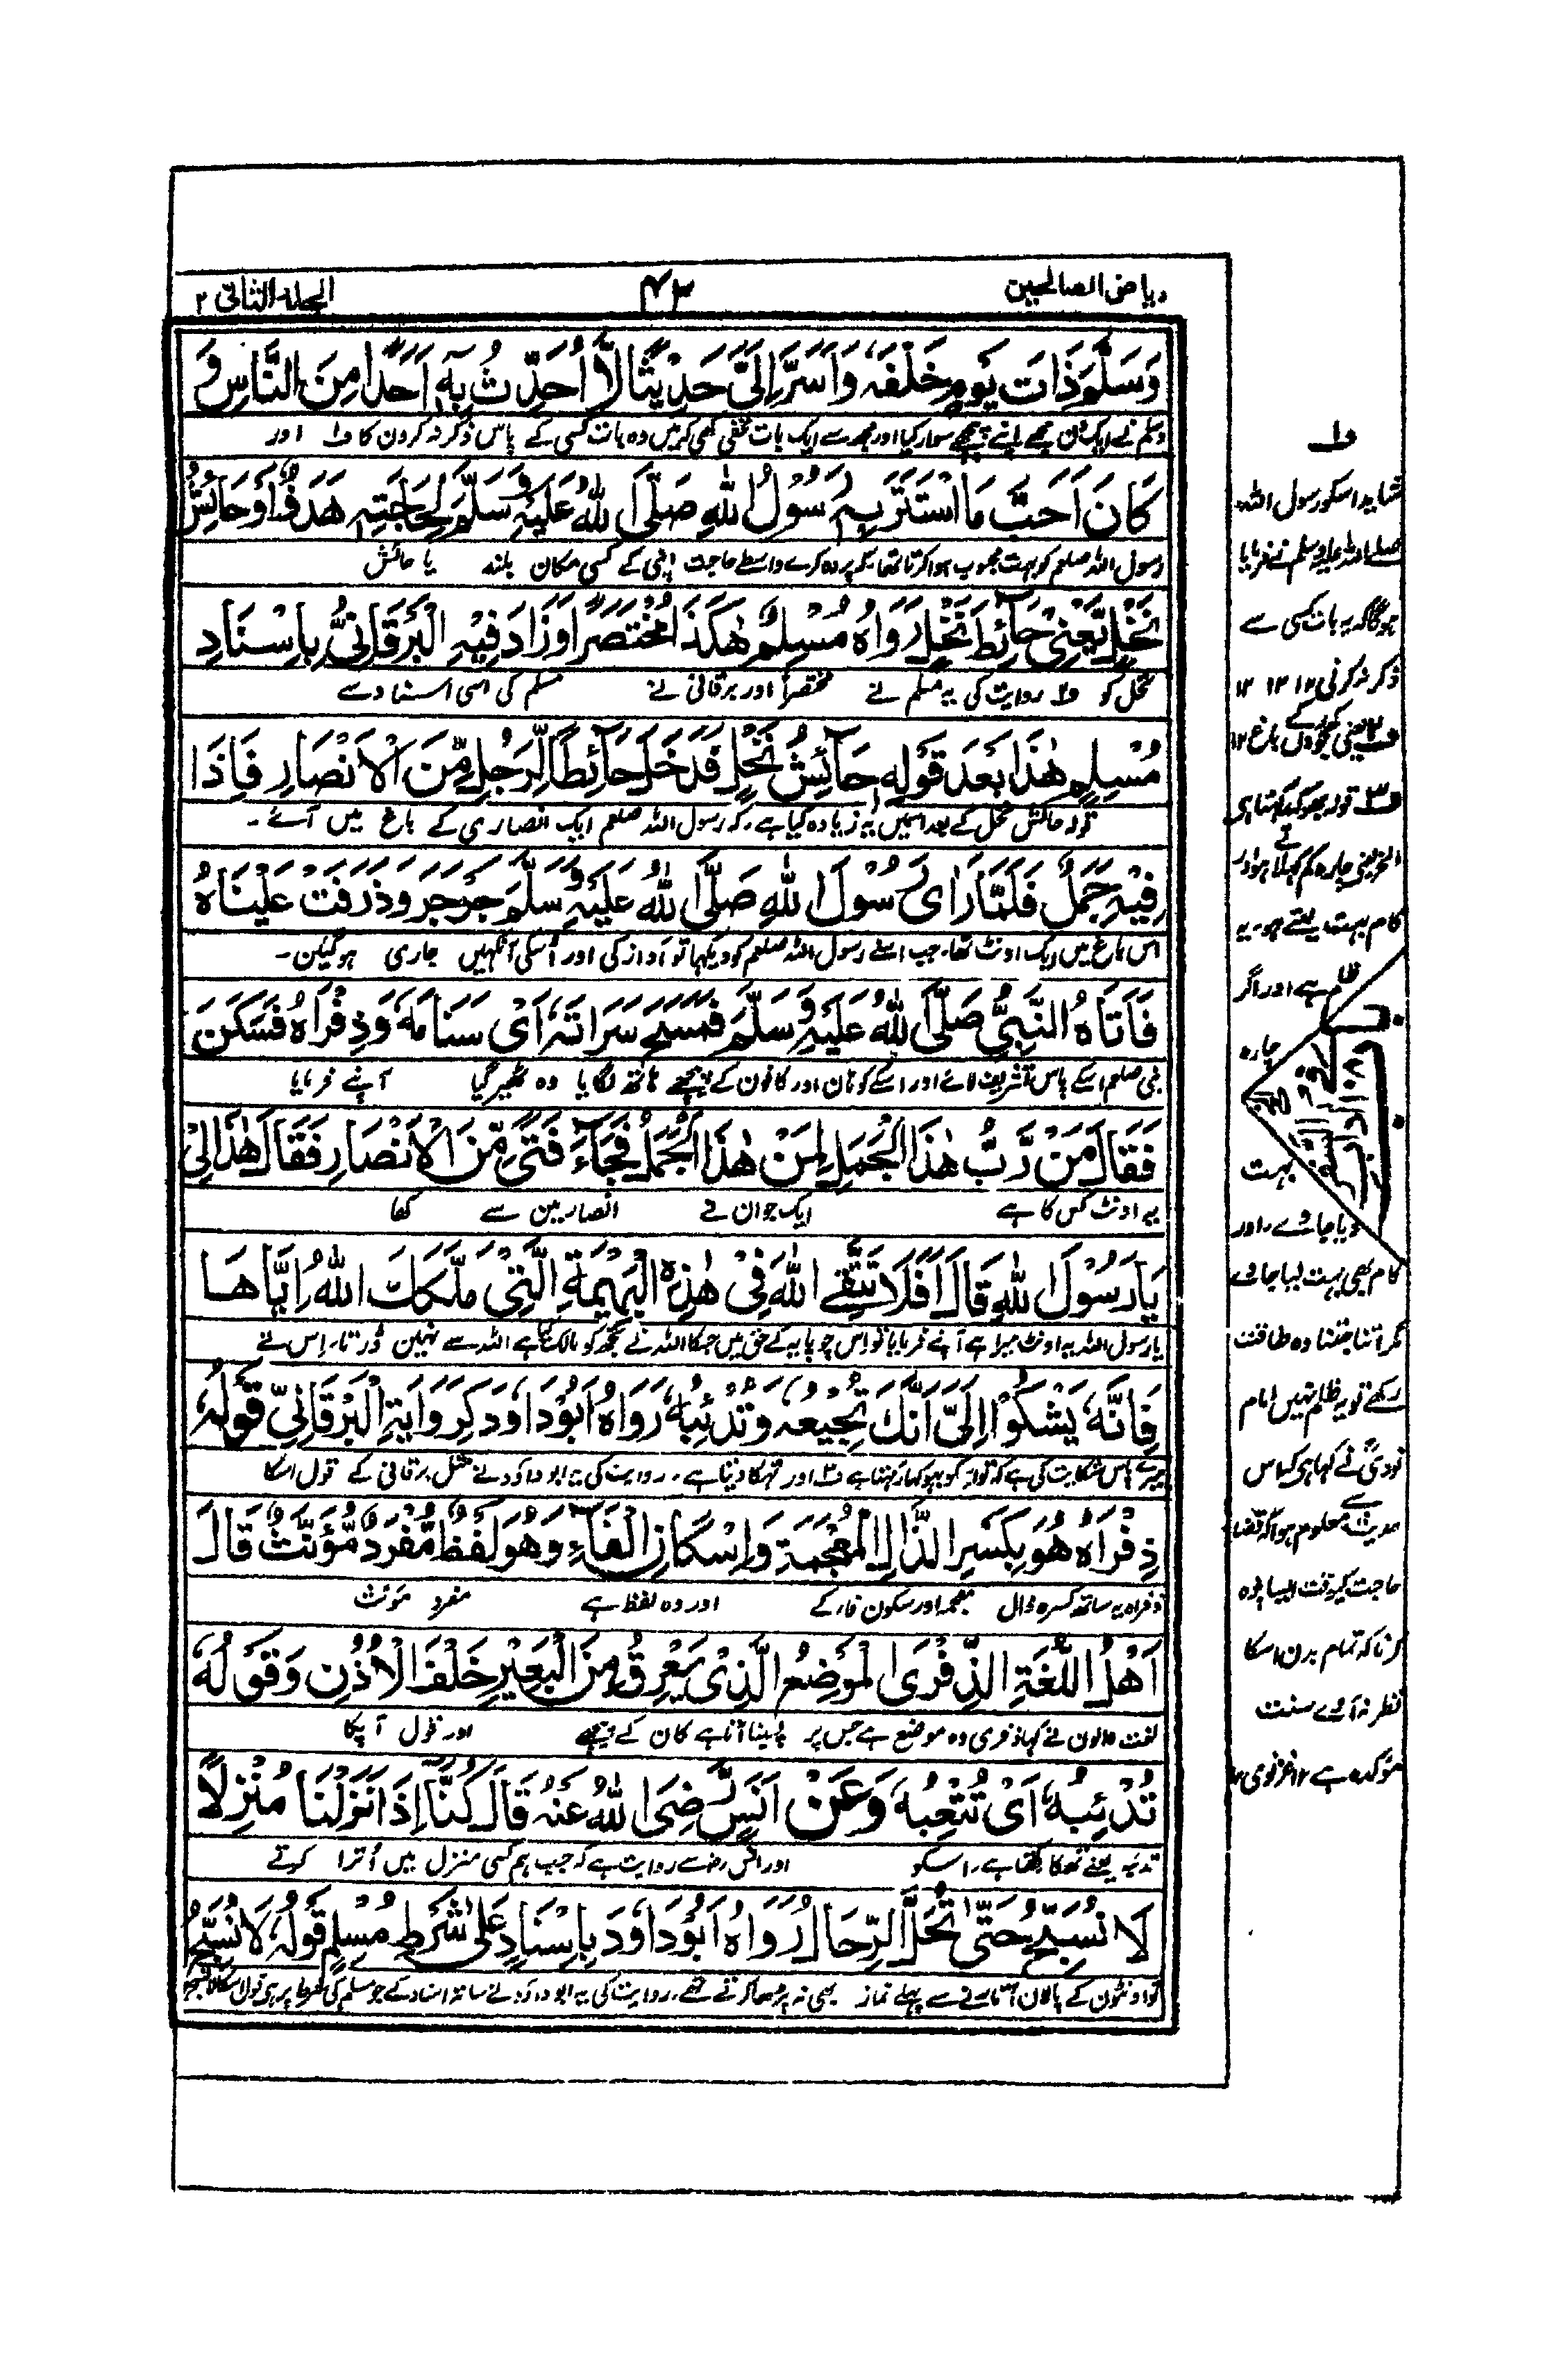 رياض الصالحين
۴۳
المجلد الثانی ۲
وَسَلَّمَ ذَاتَ يَوْمٍ خَلْفَهٗ وَاَسَرَّ اِلَیَّ حَدِيْثًا لَّا اُحَدِّثُ بِهٖٓ اَحَدًا مِنَ النَّاسِ وَ
وسلم نے ایک دن مجھے اپنے پیچھے سوار کیا اور مجھ سے ایک بات مخفی کہی کہ میں وہ بات کسی کے پاس ذکر نہ کرون گا ف۱ اور
كَانَ اَحَبَّ مَا اسْتَتَرَ بِهٖ رَسُوْلُ اللهِ صَلَّى اللهُ عَلَيْهِ وَسَلَّمَ لِحَاجَتِهٖ هَدَفٌ اَوْ حَائِشُ
رسول اللہ صلعم کو بہت محبوب ہوا کرتا تھا کہ پردہ کرے واسطے حاجت اپنی کے کسی مکان بلند یا حائش
نَخْلٍ يَّعْنِىْ حَآئِطَ نَخْلٍ رَوَاهُ مُسْلِمٌ هٰكَذَا مُخْتَصَرًا وَزَادَ فِيْهِ الْبَرْقَانِىُّ بِاِسْنَادِ
نخل کو ف۲ روایت کی یہ مسلم نے مختصراً اور برقانی نے مسلم کی اسی اسناد سے
مُسْلِمٍ هٰذَا بَعْدَ قَوْلِهٖ حَآئِشُ نَخْلٍ فَدَخَلَ حَآئِطًا لِّرَجُلٍ مِّنَ الْاَنْصَارِ فَاِذَا
قولہ حائش نخل کے بعد اسمیں یہ زیادہ کیا ہے۔ کہ رسول اللہ صلعم ایک انصاری کے باغ میں آئے۔
فِيْهِ جَمَلٌ فَلَمَّا رَاٰى رَسُوْلَ اللهِ صَلَّى اللهُ عَلَيْهِ وَسَلَّمَ جَرْجَرَ وَذَرَفَتْ عَلَيْنَاهُ
اس باغ میں ایک اونٹ تھا۔ جب اسنے رسول اللہ صلعم کو دیکھا تو آواز کی اور اُسکی آنکھیں جاری ہوگیئن۔
فَاَتَاهُ النَّبِىُّ صَلَّى اللهُ عَلَيْهِ وَسَلَّمَ فَمَسَحَ سَرَاتَهٗ اَىْ سَنَامَهٗ وَذِفْرَاهُ فَسَكَنَ
نبی صلعم اسکے پاس تشریف لائے اور اسکے کوہان اور کانون کے پیچھے ہاتھ لگایا وہ ٹھیر گیا آپنے فرمایا
فَقَالَ مَنْ رَّبُّ هٰذَا الْجَمَلِ لِمَنْ هٰذَا الْجَمَلُ فَجَآءَ فَتًى مِّنَ الْاَنْصَارِ فَقَالَ هٰذَا لِىْ
یہ اونٹ کس کا ہے ایک جوان نے انصار مین سے کہا
يَا رَسُوْلَ اللهِ قَالَ اَفَلَا تَتَّقِى اللهَ فِىْ هٰذِهِ الْبَهِيْمَةِ الَّتِىْ مَلَّكَكَ اللهُ اِيَّاهَا
یا رسول اللہ یہ اونٹ میرا ہے آپنے فرمایا تو اس چوپایہ کے حق میں جسکا اللہ نے تجھ کو مالک کیا ہے اللہ سے نہین ڈرتا۔ اس نے
فَاِنَّهٗ يَشْكُوْا اِلَىَّ اَنَّكَ تُجِيْعُهٗ وَتُدْئِبُهٗ رَوَاهُ اَبُوْدَاوٗدَ كَرِوَايَةِ الْبَرْقَانِىِّ قَوْلُهٗ
میرے پاس شکایت کی ہے کہ تو اسکو بھوکھا رکھتا ہے ف۳ اور تھکا دیتا ہے۔ روایت کی یہ ابو داؤد نے مثل برقانی کے قول اسکا
ذِفْرَاهُ هُوَ بِكَسْرِ الذَّالِ الْمُعْجَمَةِ وَاِسْكَانِ الْفَآءِ وَهُوَ لَفْظٌ مُّفْرَدٌ مُّؤَنَّثٌ قَالَ
ذفراہ یہ ساتھ کسرہ ذال معجمہ اور سکون فار کے اور وہ لفظ ہے مفرد مؤنث
اَهْلُ اللُّغَةِ الذِّفْرَى الْمَوْضِعُ الَّذِىْ يَعْرِقُ مِنَ الْبَعِيْرِ خَلْفَ الْاُذُنِ وَقَوْلُهٗ
لغت والون نے کہا ذفری وہ موضع ہے جس پر پسینا آتا ہے کان کے پیچھے اور قول آپکا
تُدْئِبُهٗ اَىْ تُتْعِبُهٗ وَعَنْ اَنَسٍ رَّضِىَ اللهُ عَنْهُ قَالَ كُنَّآ اِذَا نَزَلْنَا مُنْزِلًا
تدئبہ یعنے تھکا رکھتا ہے۔ اسکو اور انس رضہ سے روایت ہے کہ جب ہم کسی منزل میں اُترا کرتے
لَا نُسَبِّحُ حَتّٰى نَحُلَّ الرِّحَالَ رَوَاهُ اَبُوْدَاوٗدَ بِاِسْنَادٍ عَلٰى شَرْطِ مُسْلِمٍ قَوْلُهٗ لَا نُسَبِّحُ
تو اونٹون کے پالان اتارنے سے پہلے نماز بھی نہ پڑھا کرتے تھے۔ روایت کی یہ ابو داؤد نے ساتھ اسناد کے جو مسلم کی شرط پر ہی قول اسکا لا نسبح
ف۱
شاید اسکو رسول اللہ
صلے اللہ علیہ وسلم نے فرمایا
ہوگا کہ یہ بات کسی سے
ذکر نہ کرنی ۱۲ ۱۲ ۱۲
ف۲ یعنی کھجور کے باغ ۱۲
ف۳ قولہ بھوکھا رکھتا ہی
الخ یعنی چارہ کم کھلاتے ہو اور
کام بہت لیتے ہو۔ یہ
ظلم ہے اور اگر
چارہ
بہت
دیا جاوے۔ اور
کام بھی بہت لیا جائے
مگر اتنا جتنا وہ طاقت
رکھے تو یہ ظلم نہیں امام
نووی نے کہا ہی کہ اس
حدیث سے معلوم ہوا کہ قضا
حاجت کیوقت ایسا پردہ
کرنا کہ تمام بدن اسکا
نظر نہ آوے سنت
مؤکدہ ہے ۱۲ غزنوی